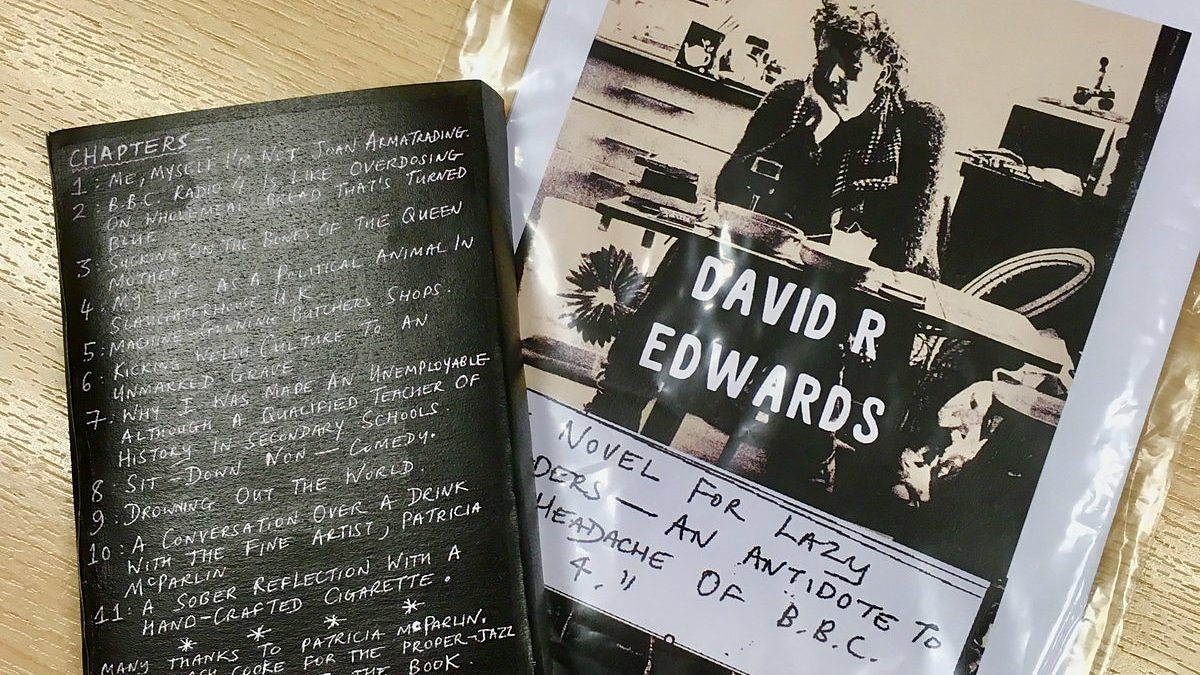 CHAPTERS
1: ME, MYSELF I'M NOT JOAN ARMATRADING.
2: B.B.C. RADIO 4 IS LIKE OVERDOSING
ON WHOLEMEAL BREAD THAT'S TURNED
BLUE
3: SUCKING ON THE BONES OF THE QUEEN
MOTHER
4: MY LIFE AS A POLITICAL ANIMAL IN
SLAUGHTERHOUSE U.K
5: MACHINE-GUNNING BUTCHERS SHOPS.
6: KICKING WELSH CULTURE TO AN
UNMARKED GRAVE
7: WHY I WAS MADE AN UNEMPLOYABLE
ALTHOUGH A QUALIFIED TEACHER OF
HISTORY IN SECONDARY SCHOOLS.
8 SIT-DOWN NON-COMEDY.
9: DROWNING OUT THE WORLD.
10: A CONVERSATION OVER A DRINK
WITH THE FINE ARTIST, PATRICIA
McPARLIN
11: A SOBER REFLECTION WITH A
HAND-CRAFTED CIGARETTE.
* * * *
MANY THANKS TO PATRICIA McPARLIN.
COOKE FOR THE PROPER-JAZZ
THE BOOK.
DAVID R
EDWARDS
NOVEL FOR LAZY
DERS — AN ANTIDOTE TO
HEADACHE OF B.B.C.
4."